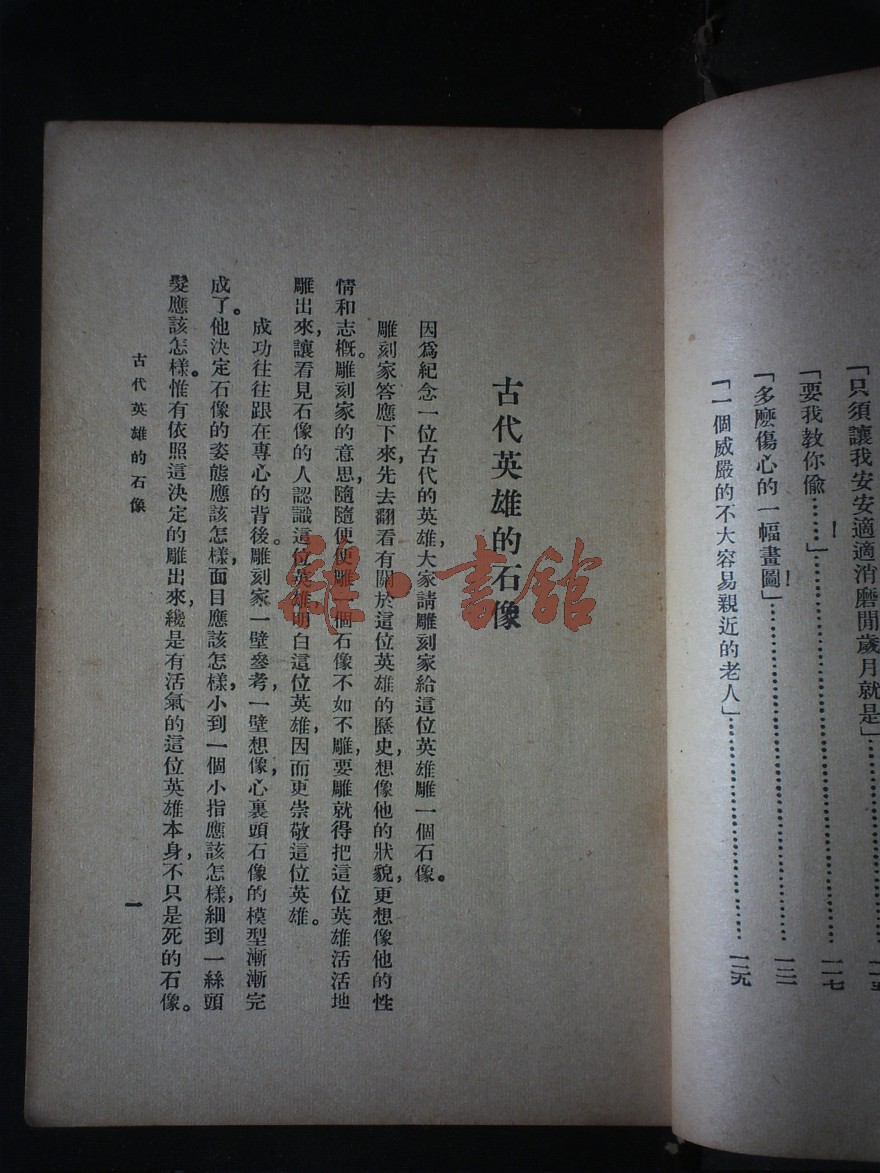 「只須讓我安安適適消磨閒歲月就是」……………
「要我教你偷……！」……………一一七
「多麽傷心的一幅畫圖！」……………一二一
「一個威嚴的不大容易親近的老人」……………一二九
古代英雄的石像
因爲紀念一位古代的英雄，大家請雕刻家給這位英雄雕一個石像。
雕刻家答應下來，先去翻看有關於這位英雄的歷史，想像他的狀貌，更想像他的性
情和志概。雕刻家的意思，隨隨便便雕一個石像不如不雕，要雕就得把這位英雄活活地
雕出來，讓看見石像的人認識這位英雄，明白這位英雄，因而更崇敬這位英雄。
成功往往跟在專心的背後。雕刻家一壁參考，一壁想像，心裏頭石像的模型漸漸完
成了。他決定石像的姿態應該怎樣，面目應該怎樣，小到一個小指應該怎樣，細到一絲頭
髮應該怎樣。惟有依照這決定的雕出來，纔是有活氣的這位英雄本身，不只是死的石像。
古代英雄的石像
一
雜·書館